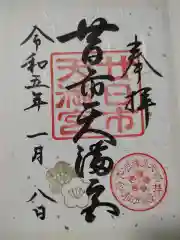 奉拝
廿日市天満宮
令和五年 一月 八日
廿日市
天満宮